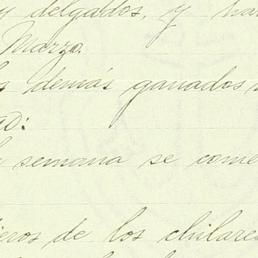 y delgados, y ha
Marzo.
demás ganados
semana se come
de los chilares